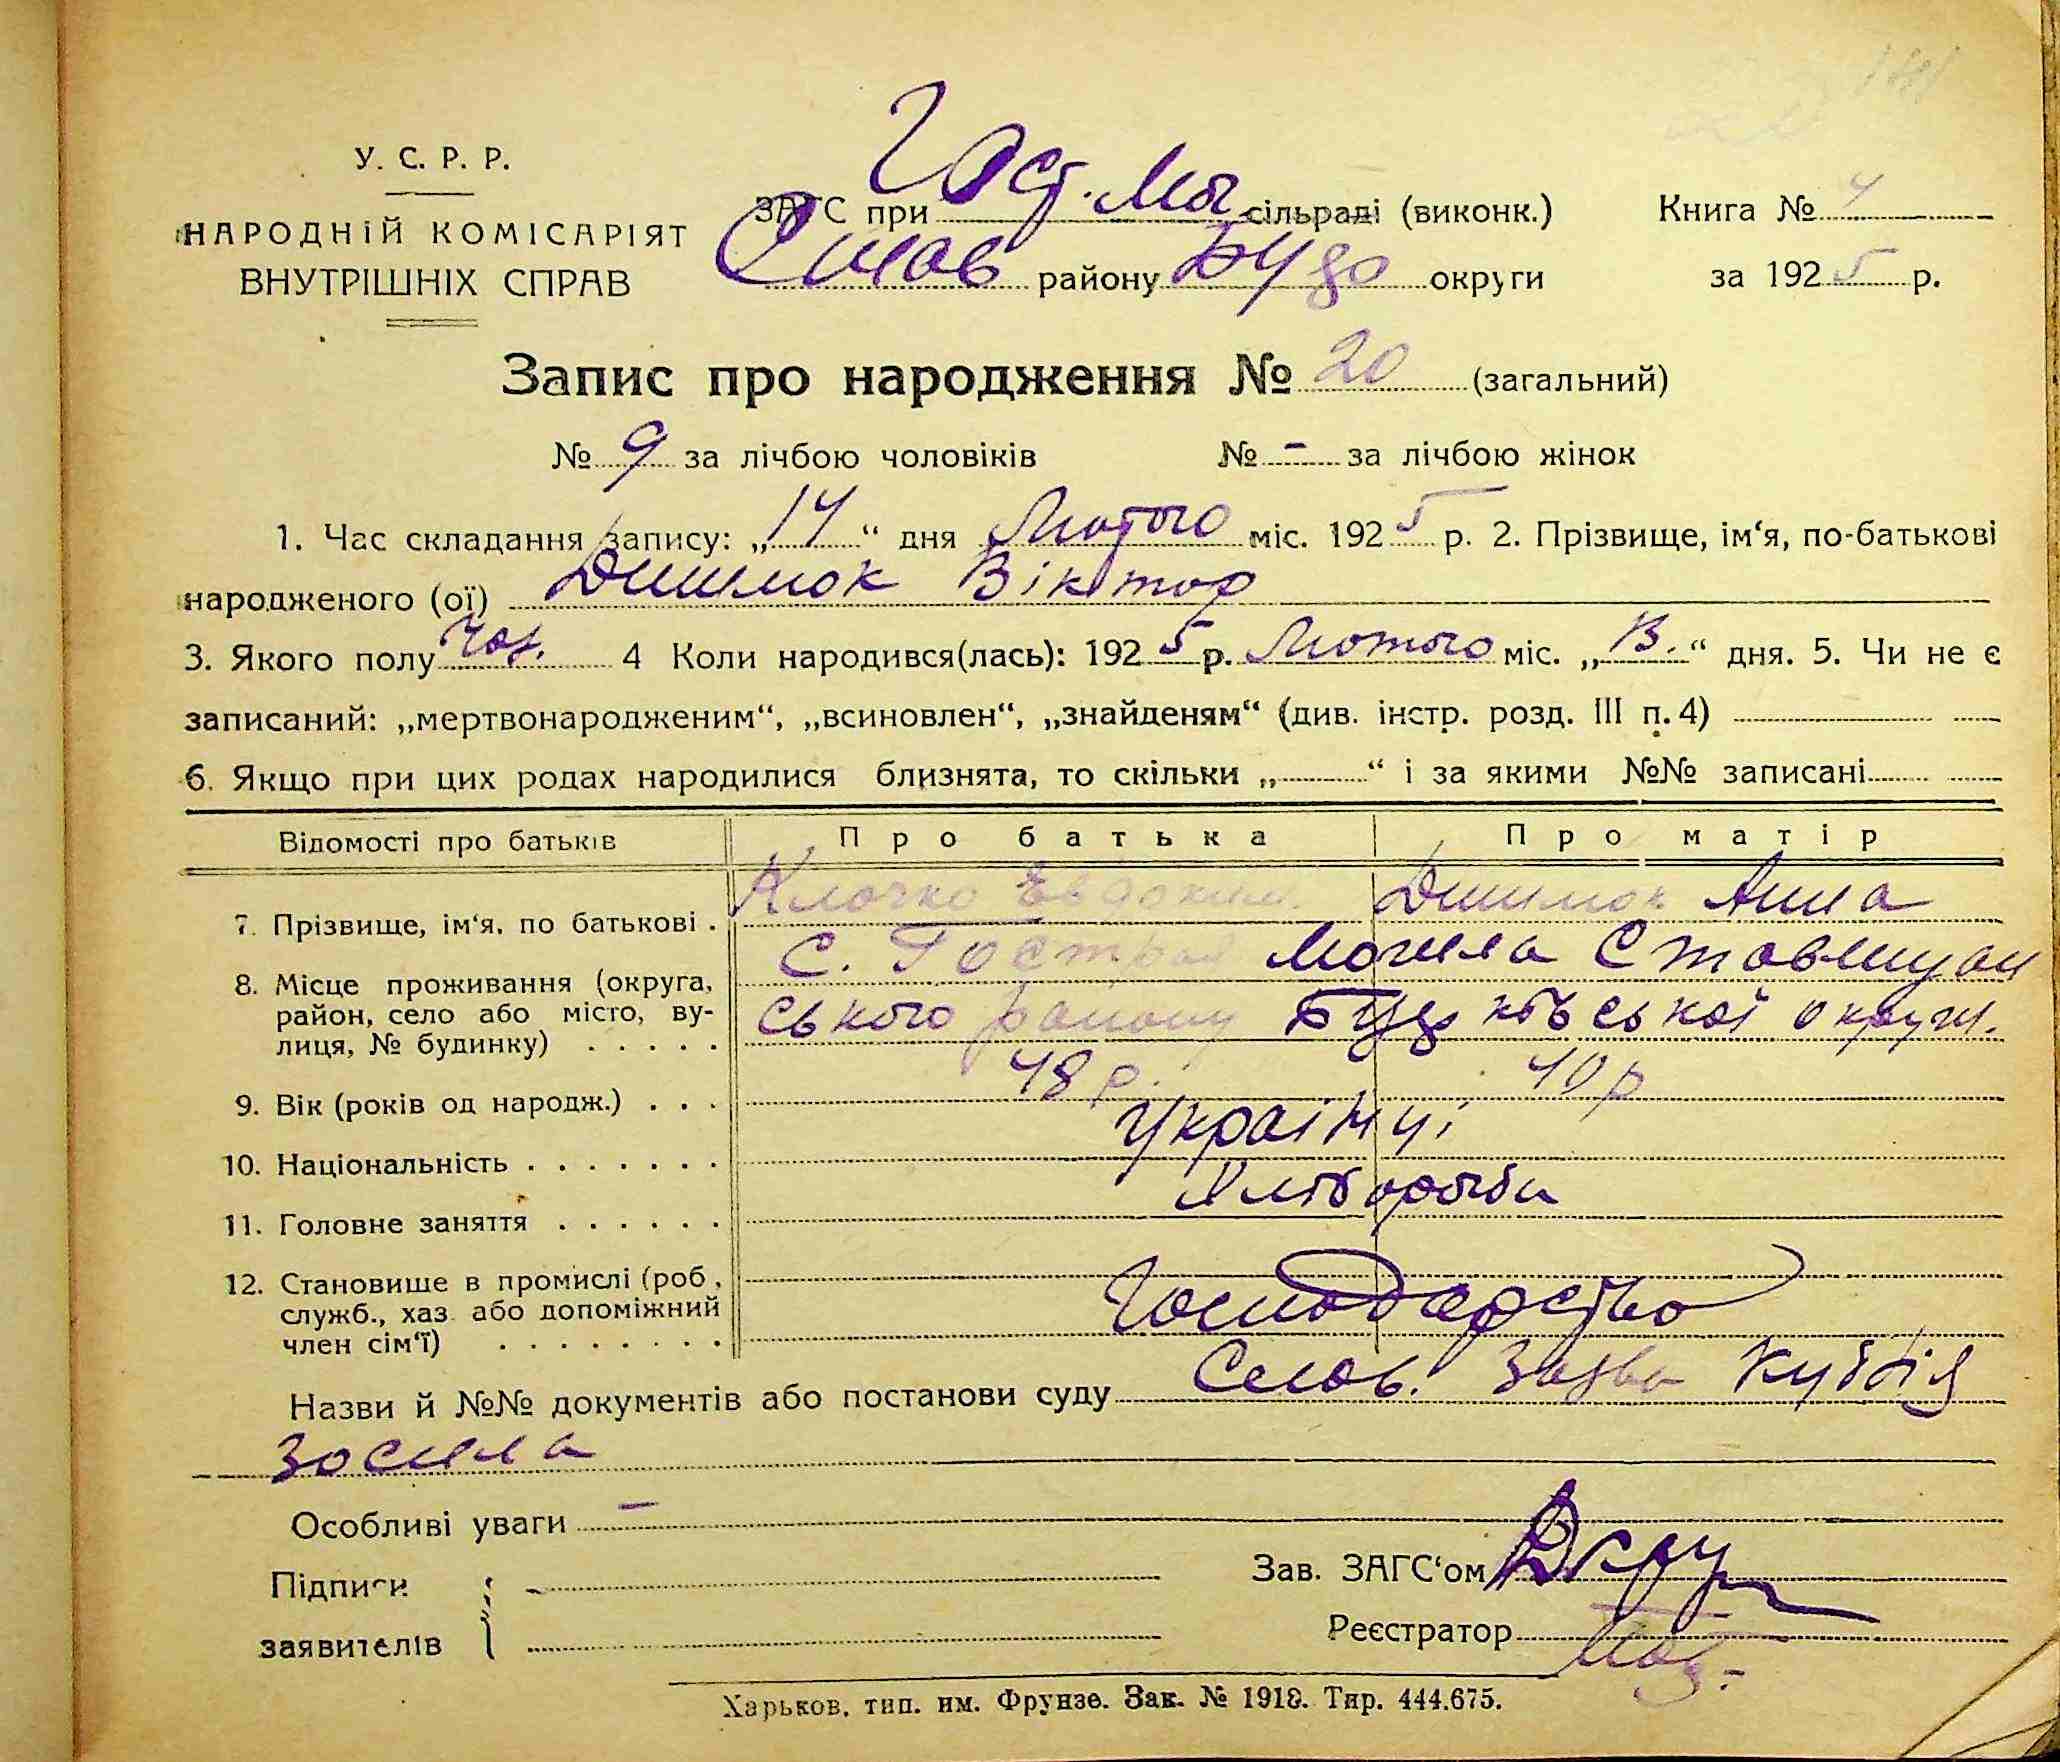 У. С. Р. Р.
НАРОДНІЙ КОМІСАРІЯТ
ВНУТРІШНІХ СПРАВ
ЗАГС при Гост. Мог сільраді (виконк.) Книга № 4
Став району округи за 1925 р.
Запис про народження № 20 (загальний)
№ 9 за лічбою чоловіків № - за лічбою жінок
1. Час складання запису: „14“ дня Лютого міс. 1925 р. 2. Прізвище, ім‘я, по-батькові
народженого (ої) Дишмок Віктор
3. Якого полу чол. 4 Коли народився(лась): 1925 р. Лютого міс. „13.“ дня. 5. Чи не є
записаний: „мертвонародженим“, „всиновлен“, „знайденям“ (див. інстр. розд. III п. 4)
6. Якщо при цих родах народилися близнята, то скільки „ “ і за якими №№ записані
Відомості про батьків Про батька Про матір
7. Прізвище, ім‘я, по батькові . Клочко Евдоким. Дишмок Анна
8. Місце проживання (округа, район, село або місто, вулиця, № будинку) . . . . . с. Гостра Могила Ставищан
ського району округи.
9. Вік (років од народж.) . . . 48 р. 40 р
10. Національність . . . . . . . Українці
11. Головне заняття . . . . . . Хліборобы
12. Становише в промислі (роб., служб., хаз. або допоміжний член сім‘ї) . . . . . . . . Господарство
Назви й №№ документів або постанови суду Слов. Заява
Особливі уваги -
Підписи
заявителів
Зав. ЗАГС‘ом
Реєстратор
Харьков, тип. им. Фрунзе. Зак. № 1918. Тир. 444.675.